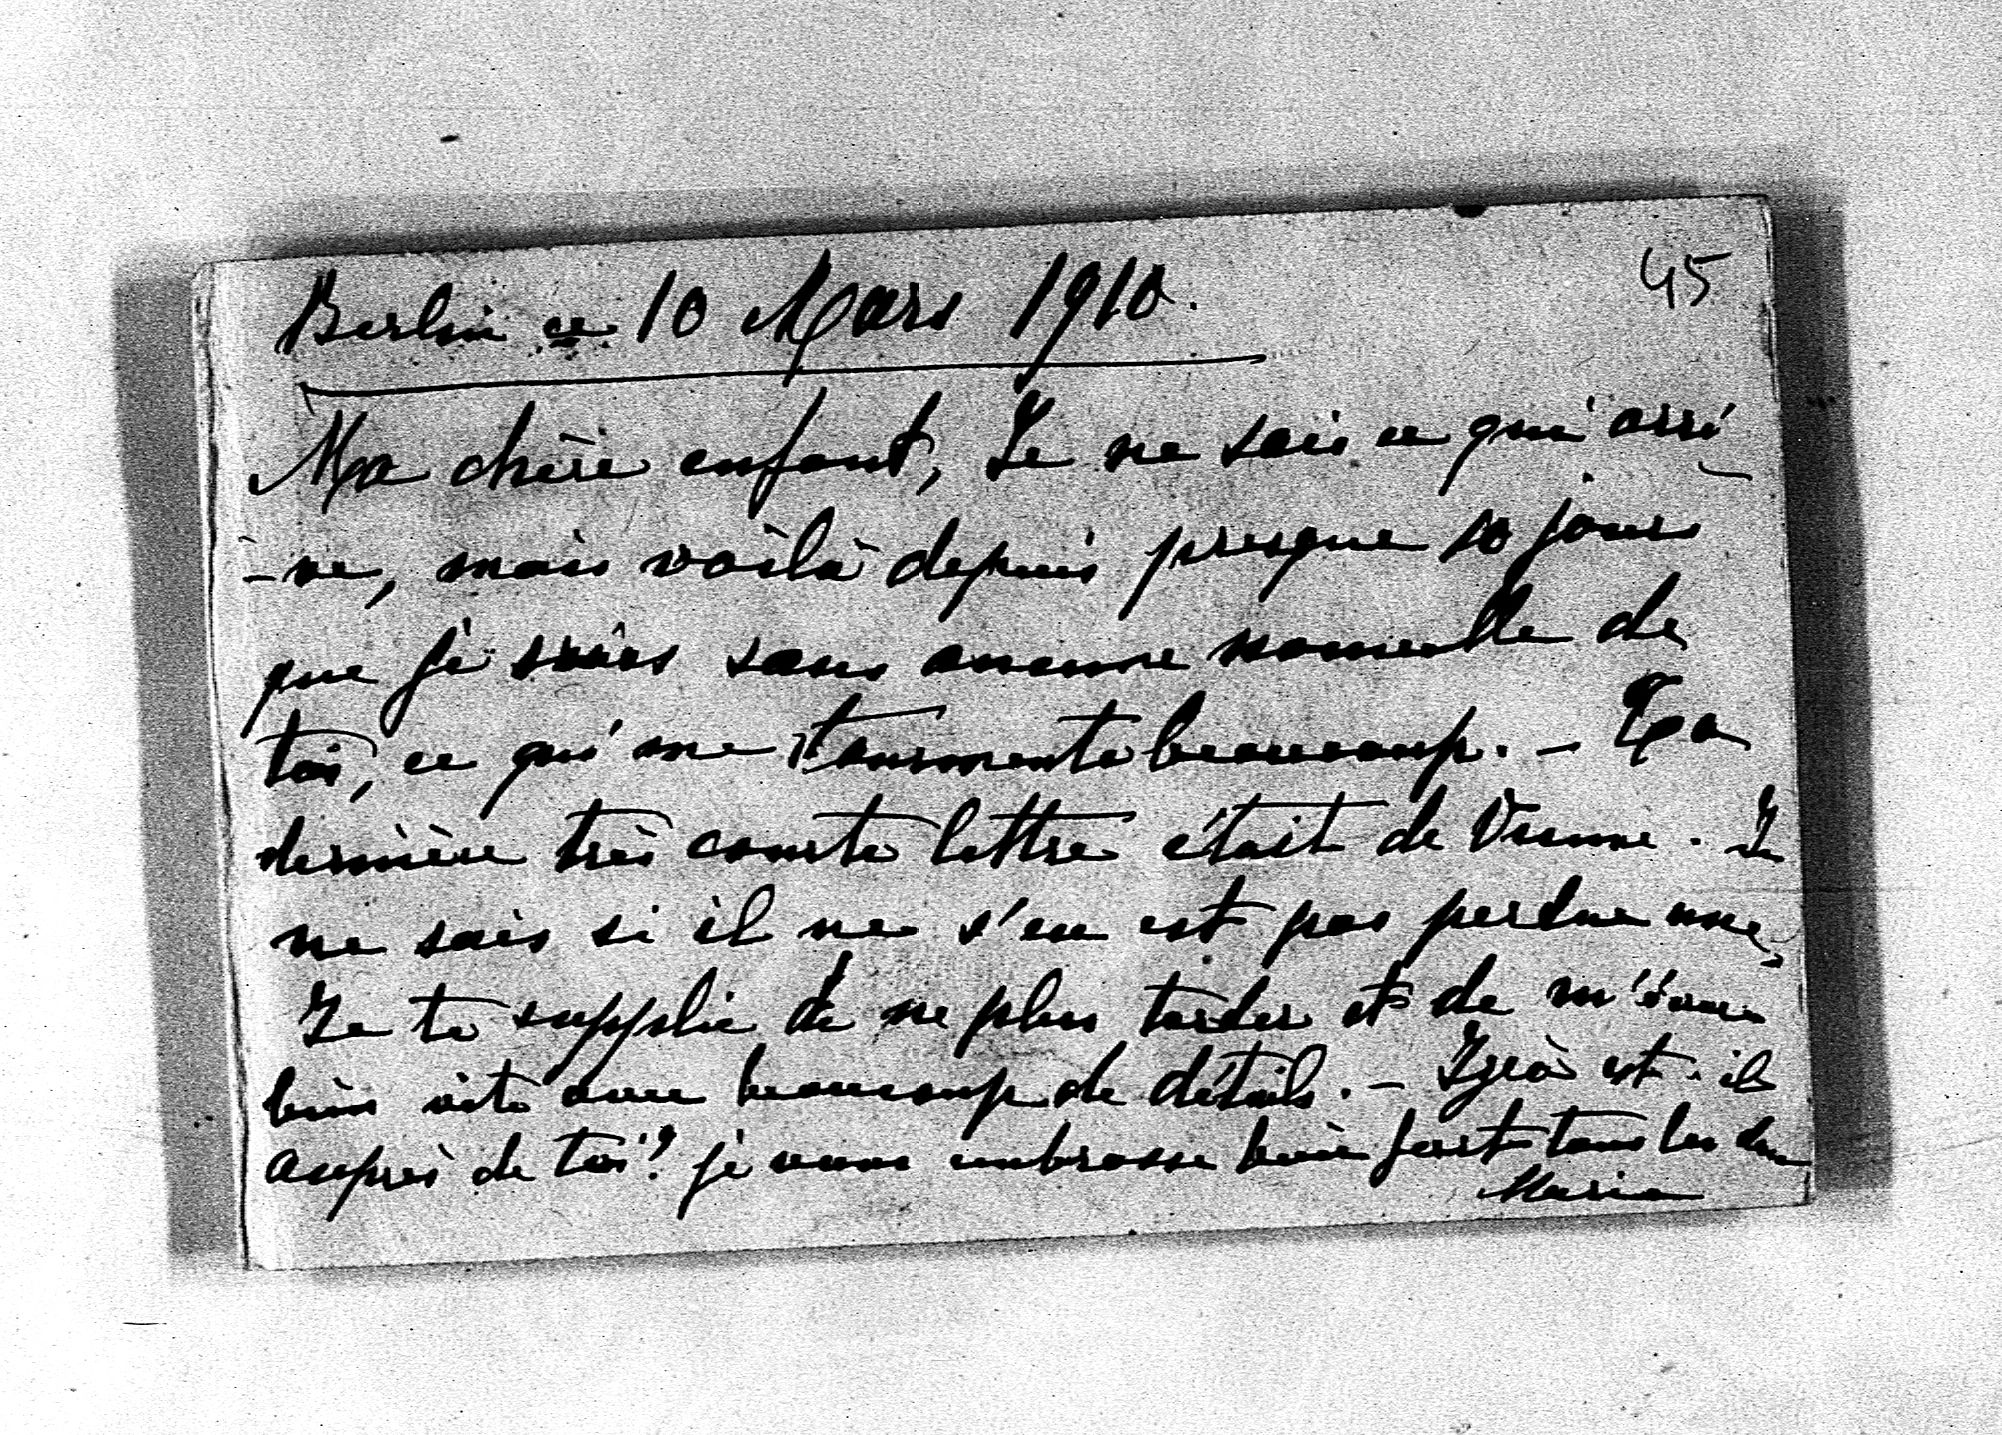 45
Berlin ce 10 Mars 1910.
Ma chère enfant, Je ne sais ce qui arri
-ve, mais voilà depuis presque 10 jours
que je suis sans aucune nouvelle de
toi, ce qui me tourmente beaucoup. – Ta
dernière très courte lettre était de Vienne. Je
ne sais si il ne s'en est pas perdue une,
Je te supplie de ne plus tarder et de m'écrire
bien vite avec beaucoup de détails. – est-il
auprès de toi? je vous embrasse bien fort tous les deux
Maria